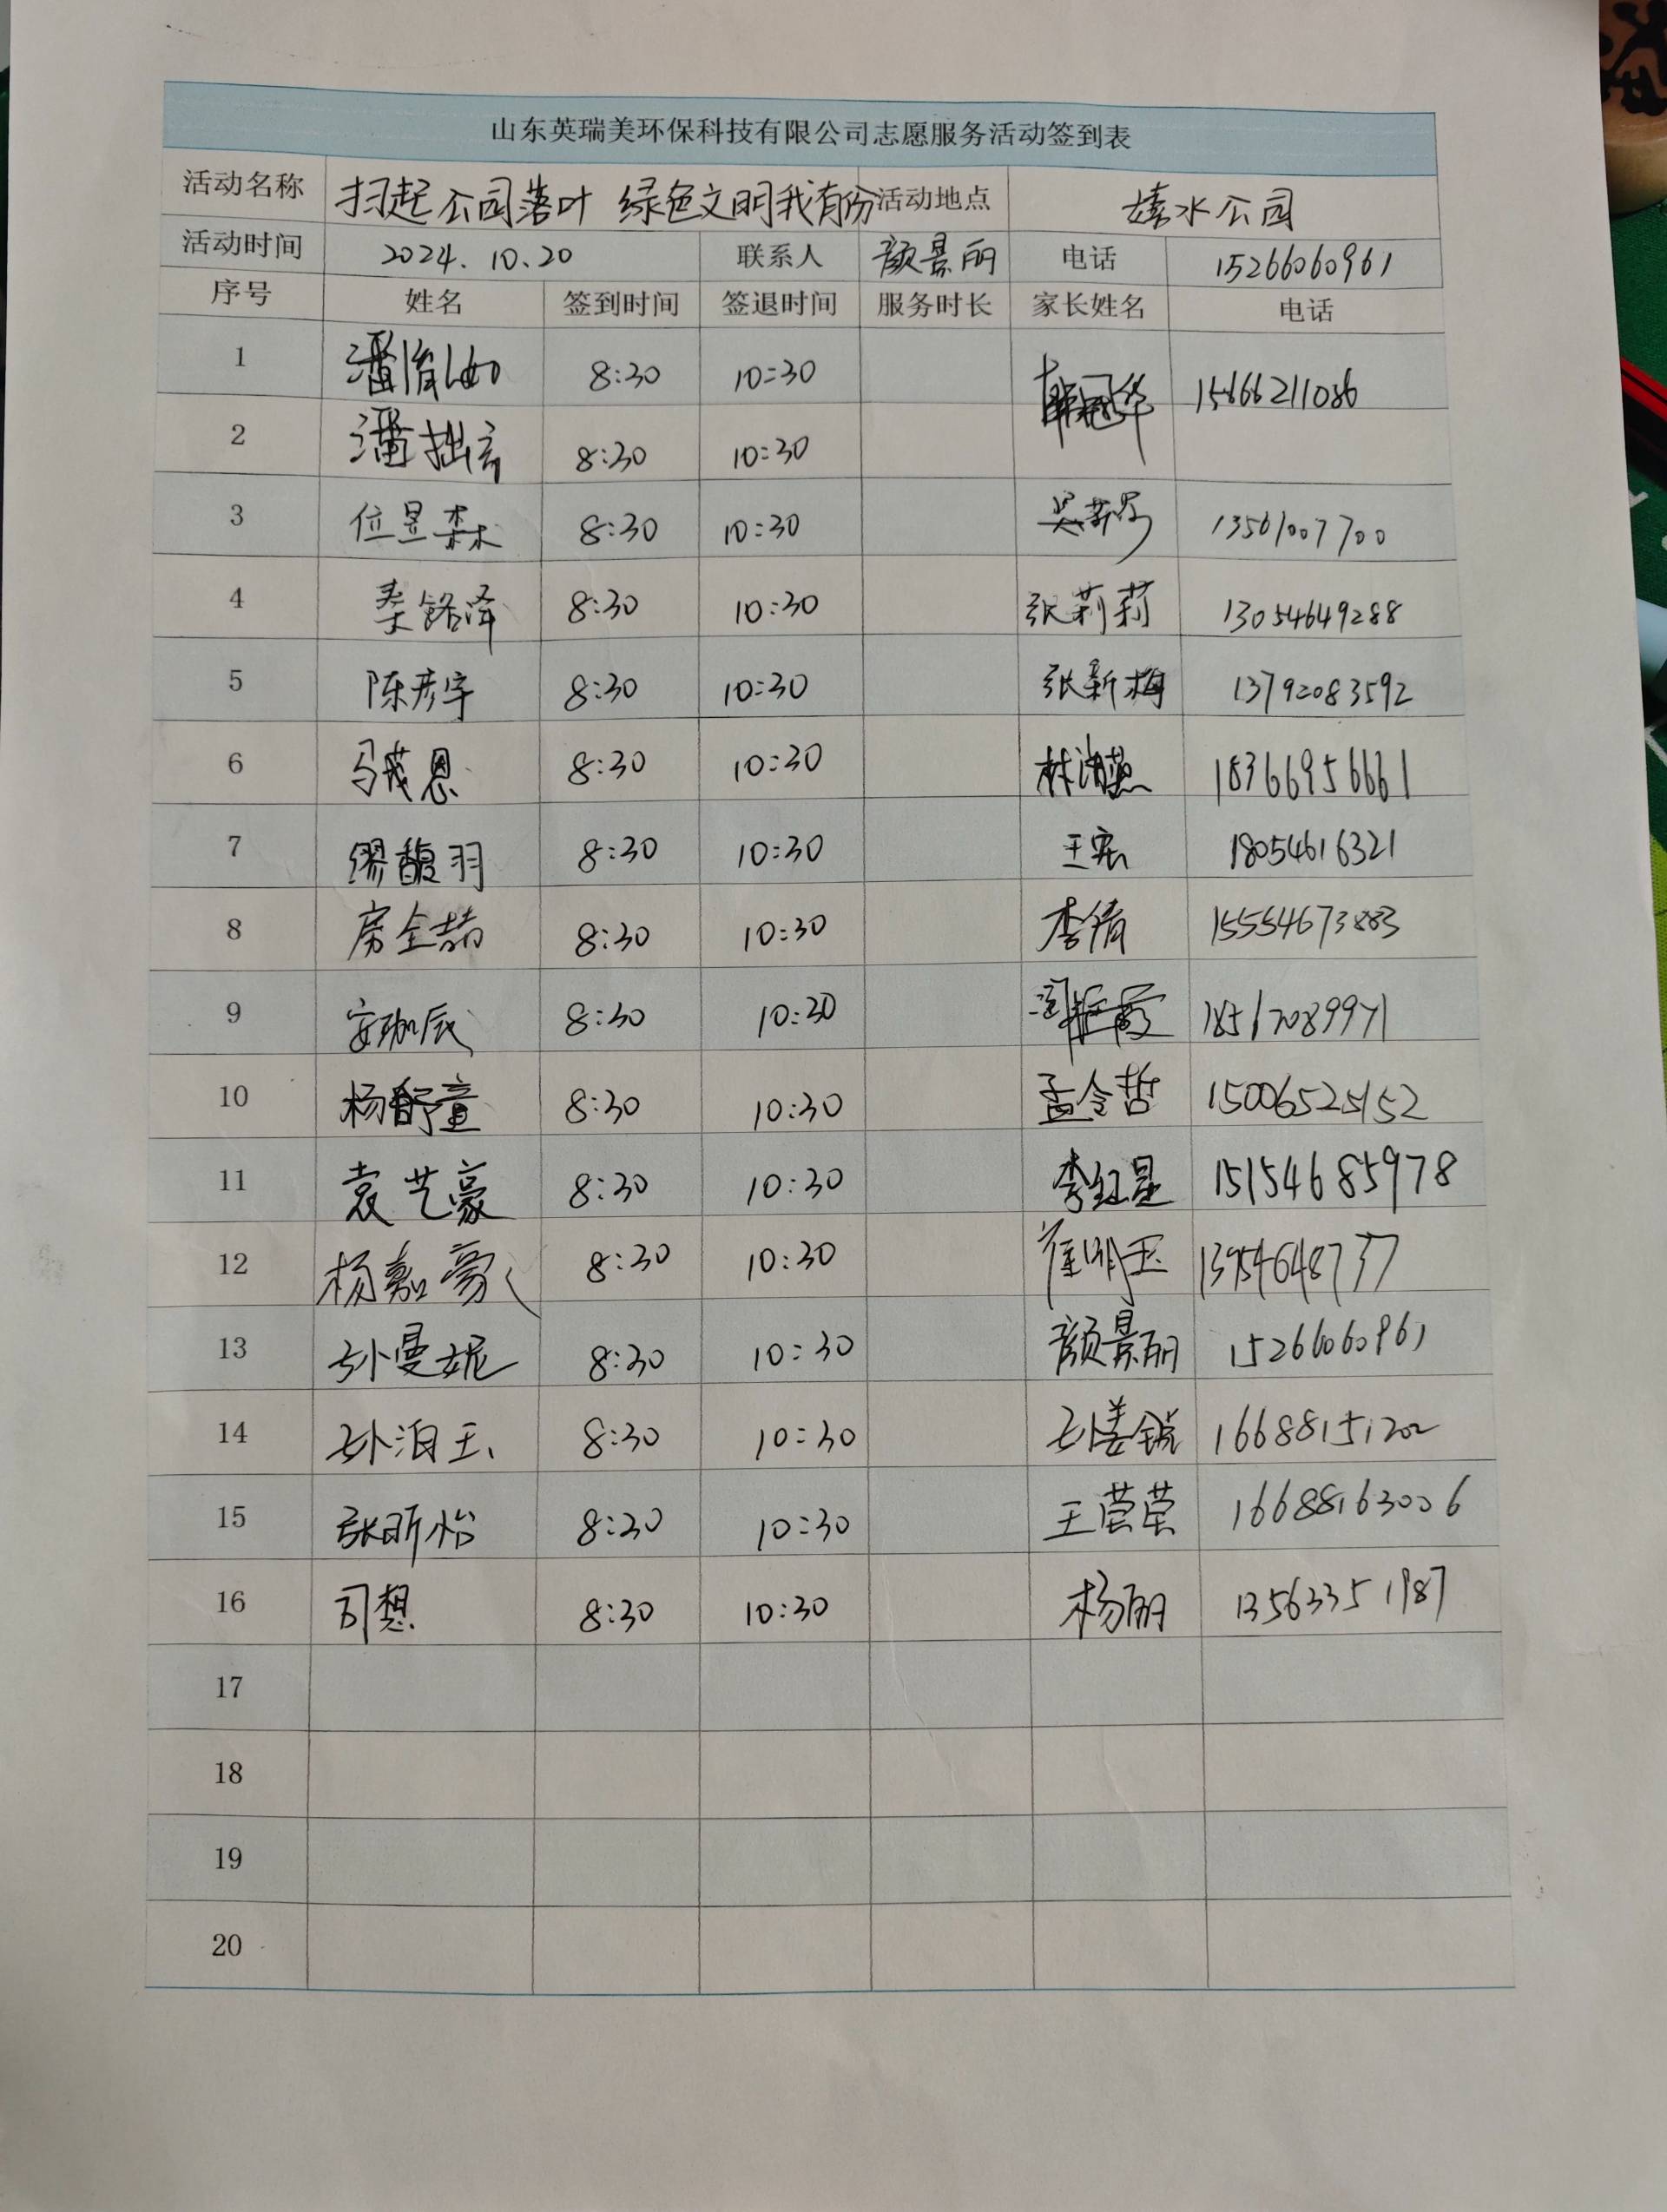 山东英瑞美环保科技有限公司志愿服务活动签到表
活动名称 扫起公园落叶 绿色文明我有份 活动地点 嬉水公园
活动时间 2024.10.20 联系人 颜景丽 电话 15266060961
序号 姓名 签到时间 签退时间 服务时长 家长姓名 电话
1 8:30 10:30 韩冠华 15666211086
2 8:30 10:30
3 位昱森 8:30 10:30 13561007700
4 桑铭泽 8:30 10:30 张莉莉 13054649288
5 陈彦宇 8:30 10:30 张新梅 13792083592
6 马茂恩 8:30 10:30 18366956661
7 缪馥羽 8:30 10:30 王宏 18054616321
8 房金喆 8:30 10:30 李倩 15554673883
9 安珈辰 8:30 10:30
10 杨舒童 8:30 10:30 孟令哲 15006525152
11 袁艺豪 8:30 10:30 李红星 15154685978
12 杨嘉豪 8:30 10:30 崔明玉 13954648737
13 孙曼妮 8:30 10:30 颜景丽 15266060961
14 孙泊玉 8:30 10:30 孙姜锐 16688151202
15 张昕怡 8:30 10:30 王荣荣 16688163006
16 司想 8:30 10:30 杨丽 13563351987
17
18
19
20